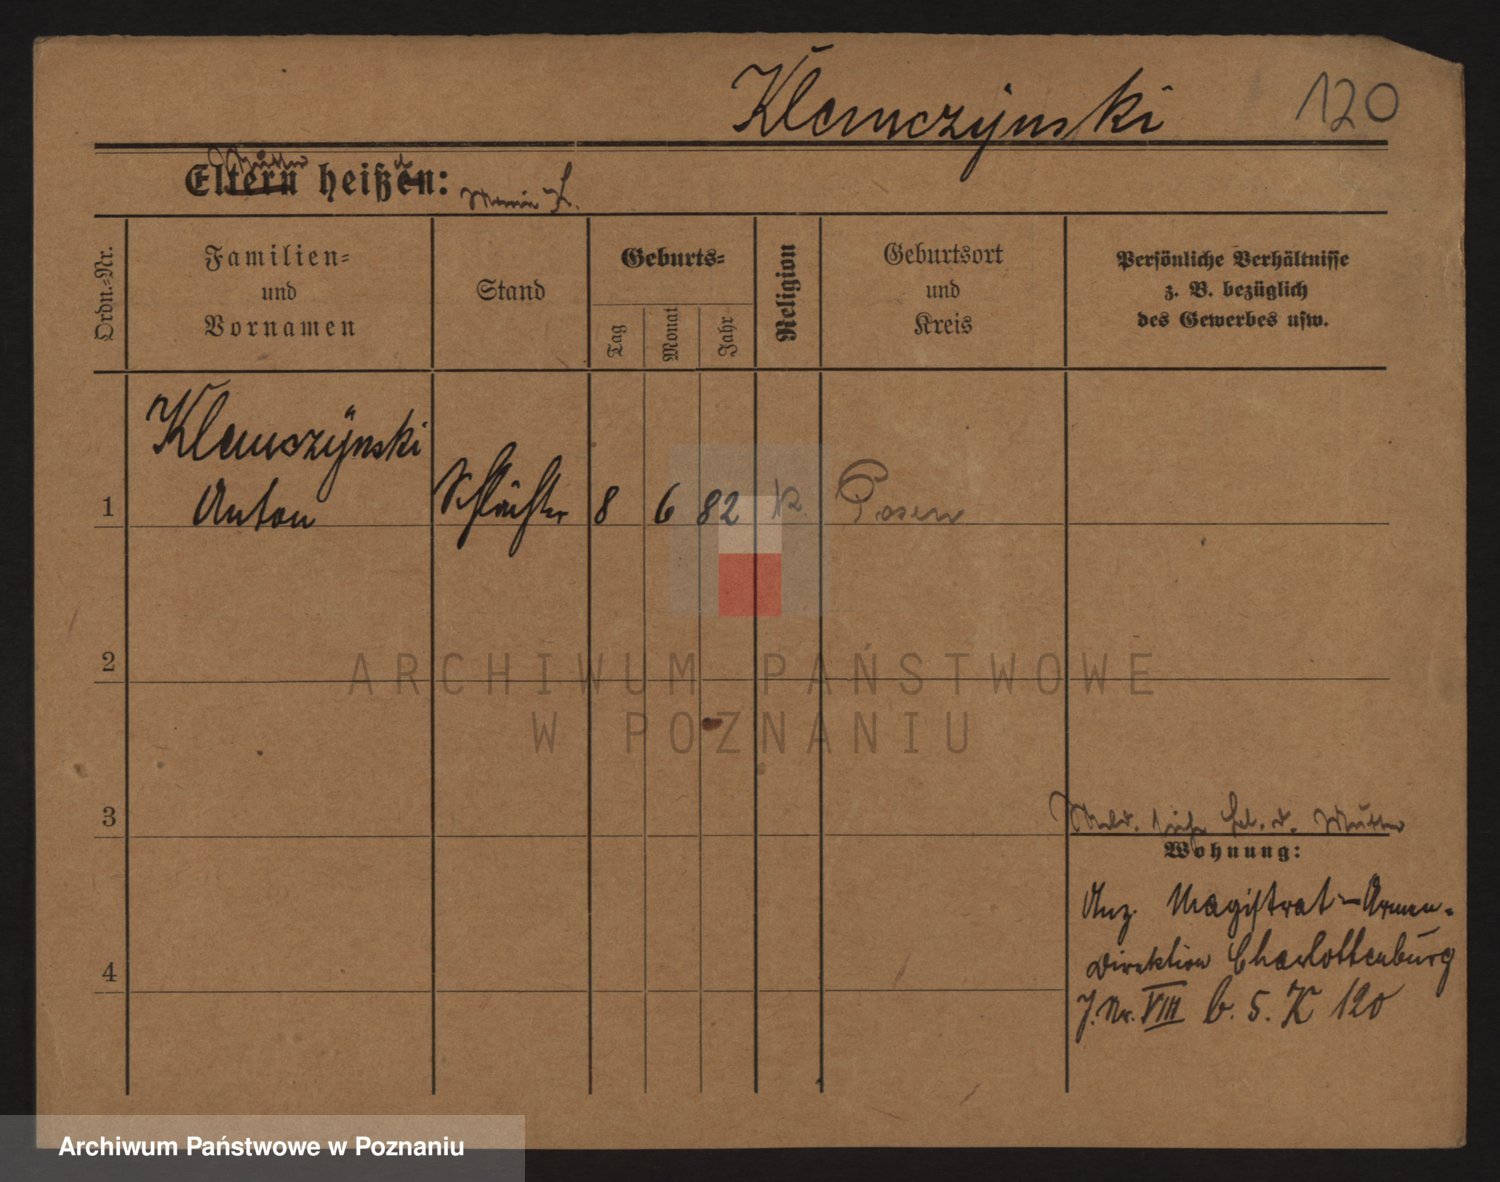 Klemczynski 120
Mutter
Eltern heißen: Maria K.
Ordn.-Nr.
Familien-
und
Vornamen
Stand
Geburts-
Tag
Monat
Jahr
Religion
Geburtsort
und
Kreis
Persönliche Verhältnisse
z. B. bezüglich
des Gewerbes usw.
Klemczynski
1 Anton Schlächter 8 6 82 K. Posen
2
3
4
Meld. siehe bei d. Mutter
Wohnung:
Anz. Magistrat-Armen-
Direktion Charlottenburg
J. Nr. VIII b. 5. K 120
ARCHIWUM PAŃSTWOWE
W POZNANIU
Archiwum Państwowe w Poznaniu